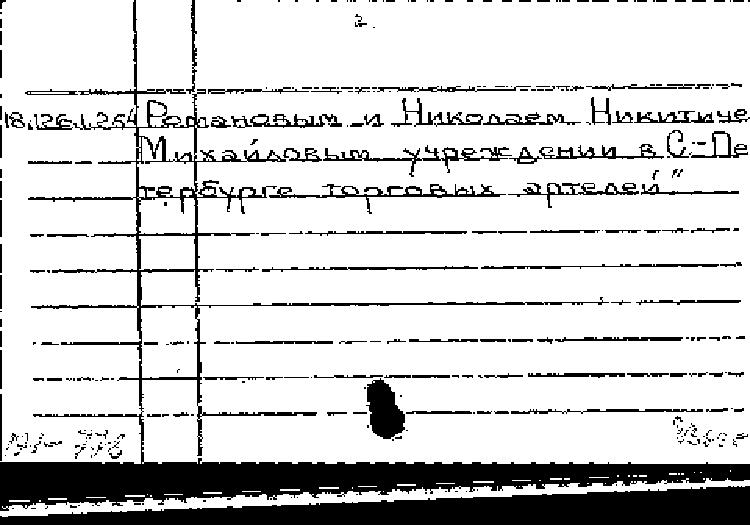 2.
18.126.1.254 Романовым и Николаем Никитиче
Михайловым учреждении в С.-Пе
тербурге торговых артелей"